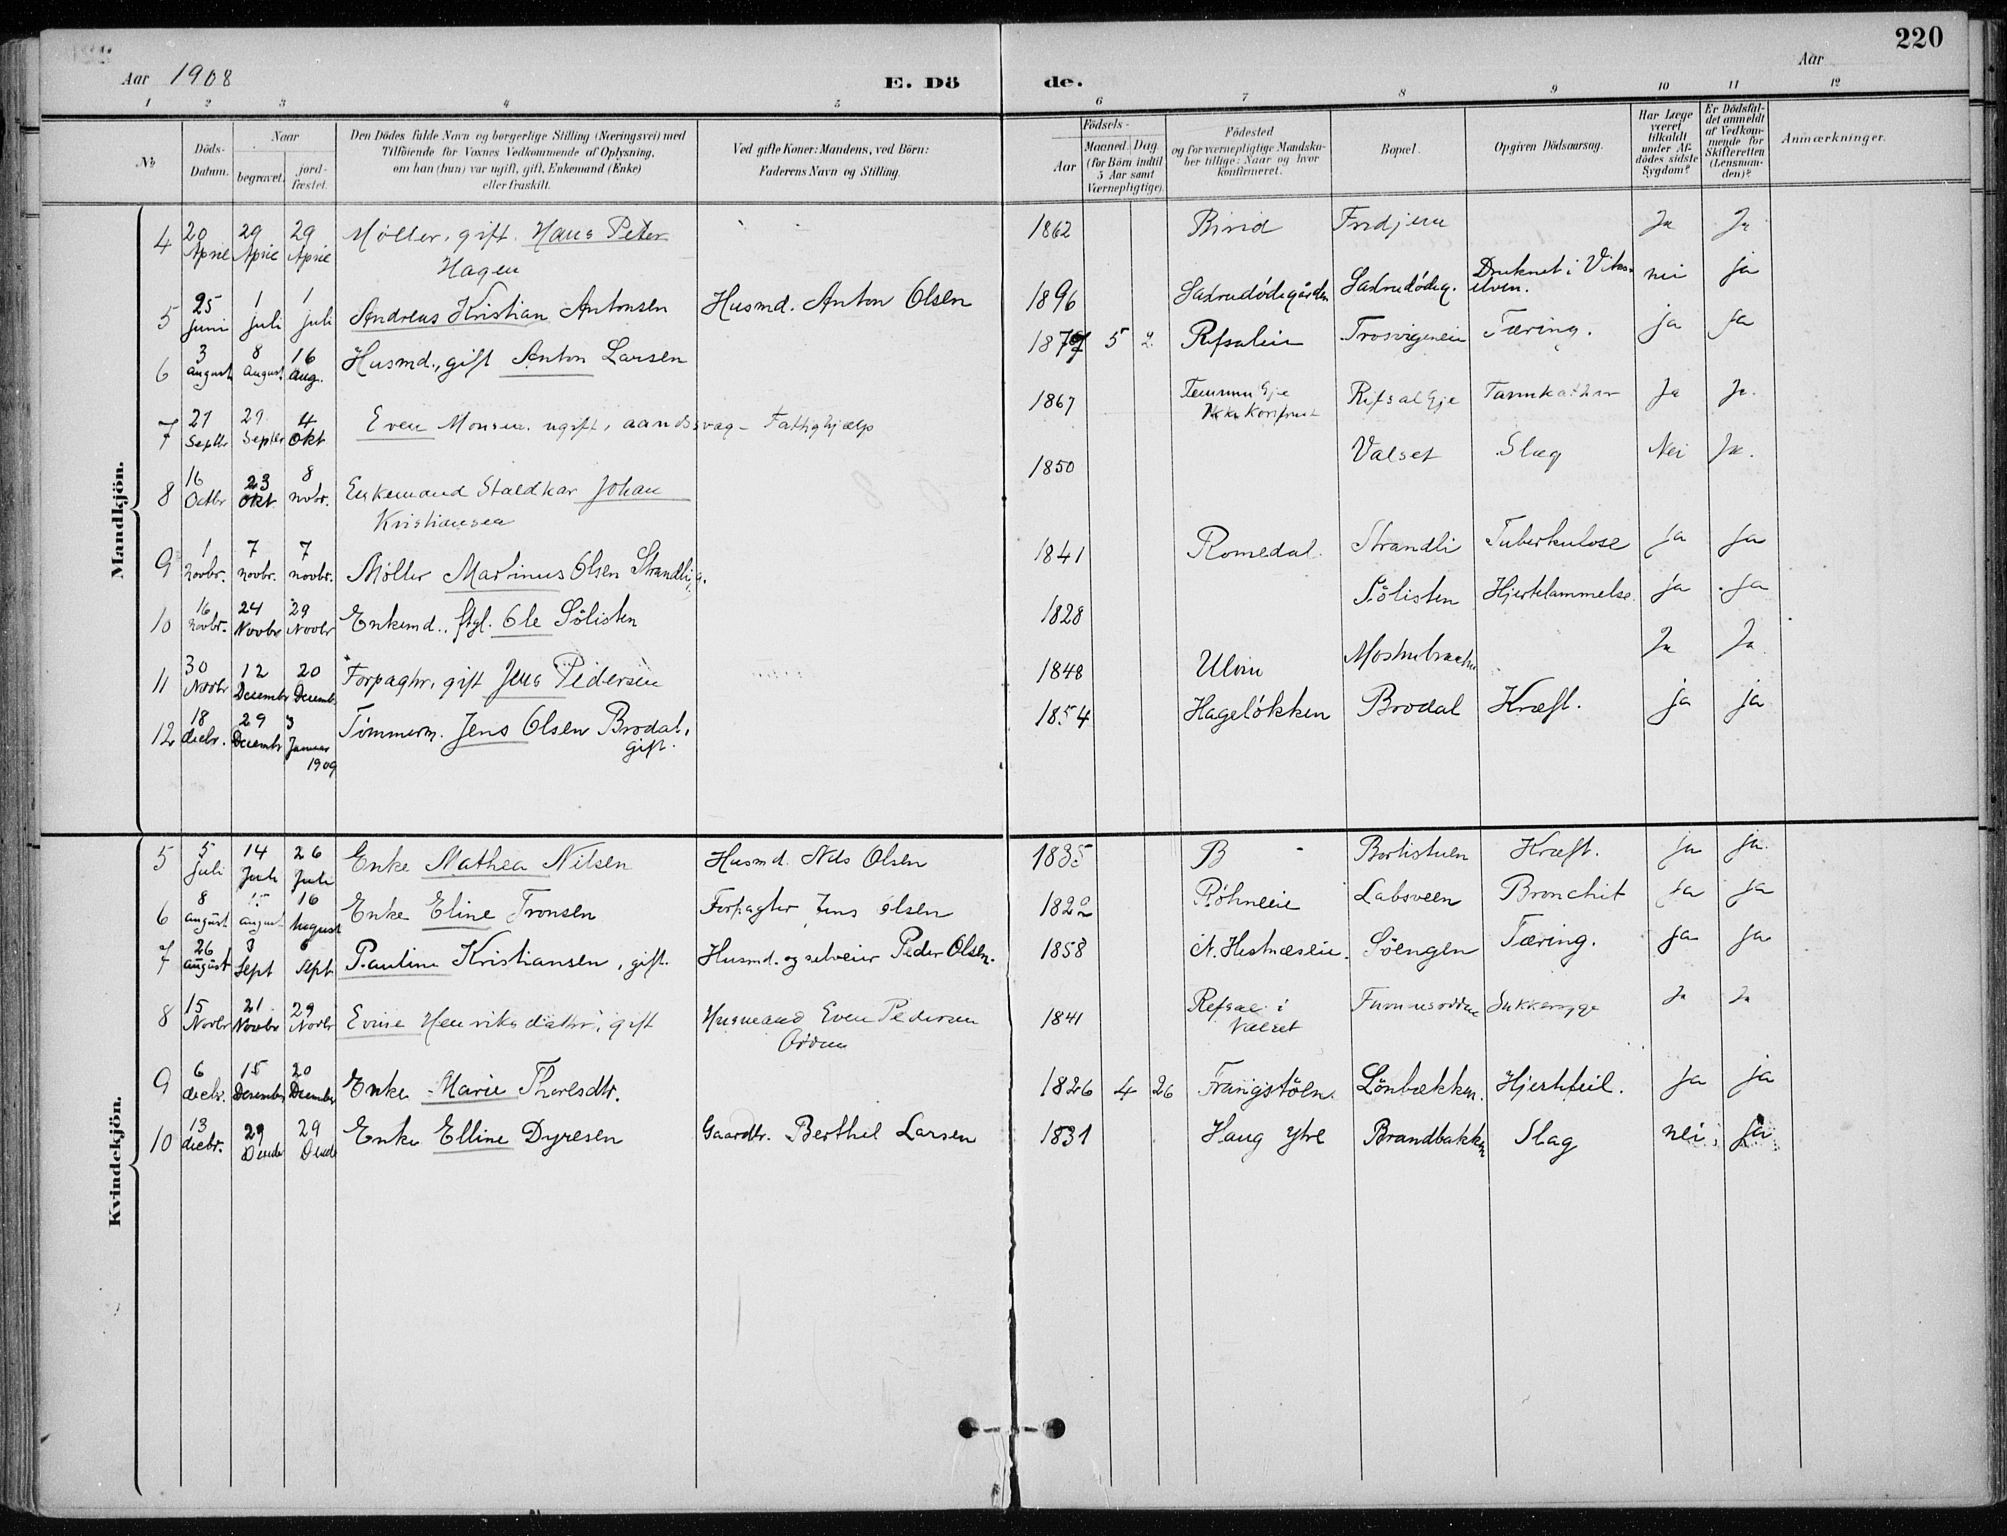 220
Aar 1908 E. Dö de. Aar
1 2 3 4 5 6 7 8 9 10 11 12
No
Döds-Datum.
Naar
begravet.
jord-fæstet.
Den Dödes fulde Navn og borgerlige Stilling (Næringsvei) med
Tilföiende for Voxnes Vedkommende af Oplysning,
om han (hun) var ugift, gift, Enkemand (Enke)
eller fraskilt.
Ved gifte Koner: Mandens, ved Börn:
Faderens Navn og Stilling.
Födsels-
Aar
Maaned. Dag.
(for Börn indtil
5 Aar samt
Værnepligtige).
Födested
og for værnepligtige Mandska-
ber tillige: Naar og hvor
konfirmeret.
Bopæl.
Opgiven Dödsaarsag.
Har Læge
været
tilkaldt
under Af-
dödes sidste
Sygdom?
Er Dödsfal-
det anmeldt
af Vedkom-
mende for
Skifteretten
(Lensman-
den)?
Anmærkninger.
Mandkjön.
4 20 April 29 April 29 April Møller, gift. Hans Peter Hagen 1862 Birid Ja Ja
5 25 juni 1 juli 1 juli Andreas Kristian Antonsen Husmd. Anton Olsen 1896 Druknet i elven. nei ja
6 3 august 8 august 16 aug. Husmd., gift Anton Larsen 5 2 Refsaleie Tæring. ja ja
7 21 Septbr 29 Septbr 4 Okt Even Monsen. ugift, aandssvag - Fattighjælp 1867 Ikke Konfirm Refsal Eje Ja Ja.
8 16 Octbr 23 Okt 8 novbr. Enkemand Staldkar Johan Kristiansen 1850 Valset Slag Nei Ja.
9 1 novbr. 7 novbr. 7 novbr. Møller Martinus Olsen Strandli, g. 1841 Romedal. Strandli Tuberkulose ja ja
10 16 novbr. 24 Novbr 29 Novbr Enkemd., Ole Sölisten 1828 Sölisten Hjertelammelse. ja ja
11 30 Novbr 12 Decembr 20 Decemb. Forpagtr, gift Jens Pedersen 1848 Ja Ja
12 18 decbr. 29 Decembr 3 Januar 1909 Tömmerm. Jens Olsen Brodal, gift. 1854 Hagelökken Brodal Kræft. ja ja
Kvindekjön.
5 5 juli 14 Juli 26 Juli Enke Mathea Nilsen Husmd. Nils Olsen 1835 B Bortistuen Kræft. ja ja.
6 8 august 15 august 16 August Enke Eline Tronsen Forpagter Jens Olsen Röhneeie Labsveen Bronchit ja ja
7 26 august 3 Sept 6 Sept Pauline Kristiansen, gift. Husmd. og selveier Peder Olsen. 1858 N. Hestnæseie. Söengen Tæring. ja ja
8 15 Novbr 21 Novbr 29 Novbr Henriksdatr, gift Husmand Even Pedersen 1841 Refsal i Valset Sukkersyge Ja Ja
9 6 decbr. 15 December 20 December Enke Marie Thoresdtr. 1826 4 26 Lönbækken. Hjertefeil. ja ja
10 13 decbr. 29 29 Enke Elline Dyresen Gaardbr. Berthel Larsen 1831 Haug ytre Brandbakken Slag nei. ja